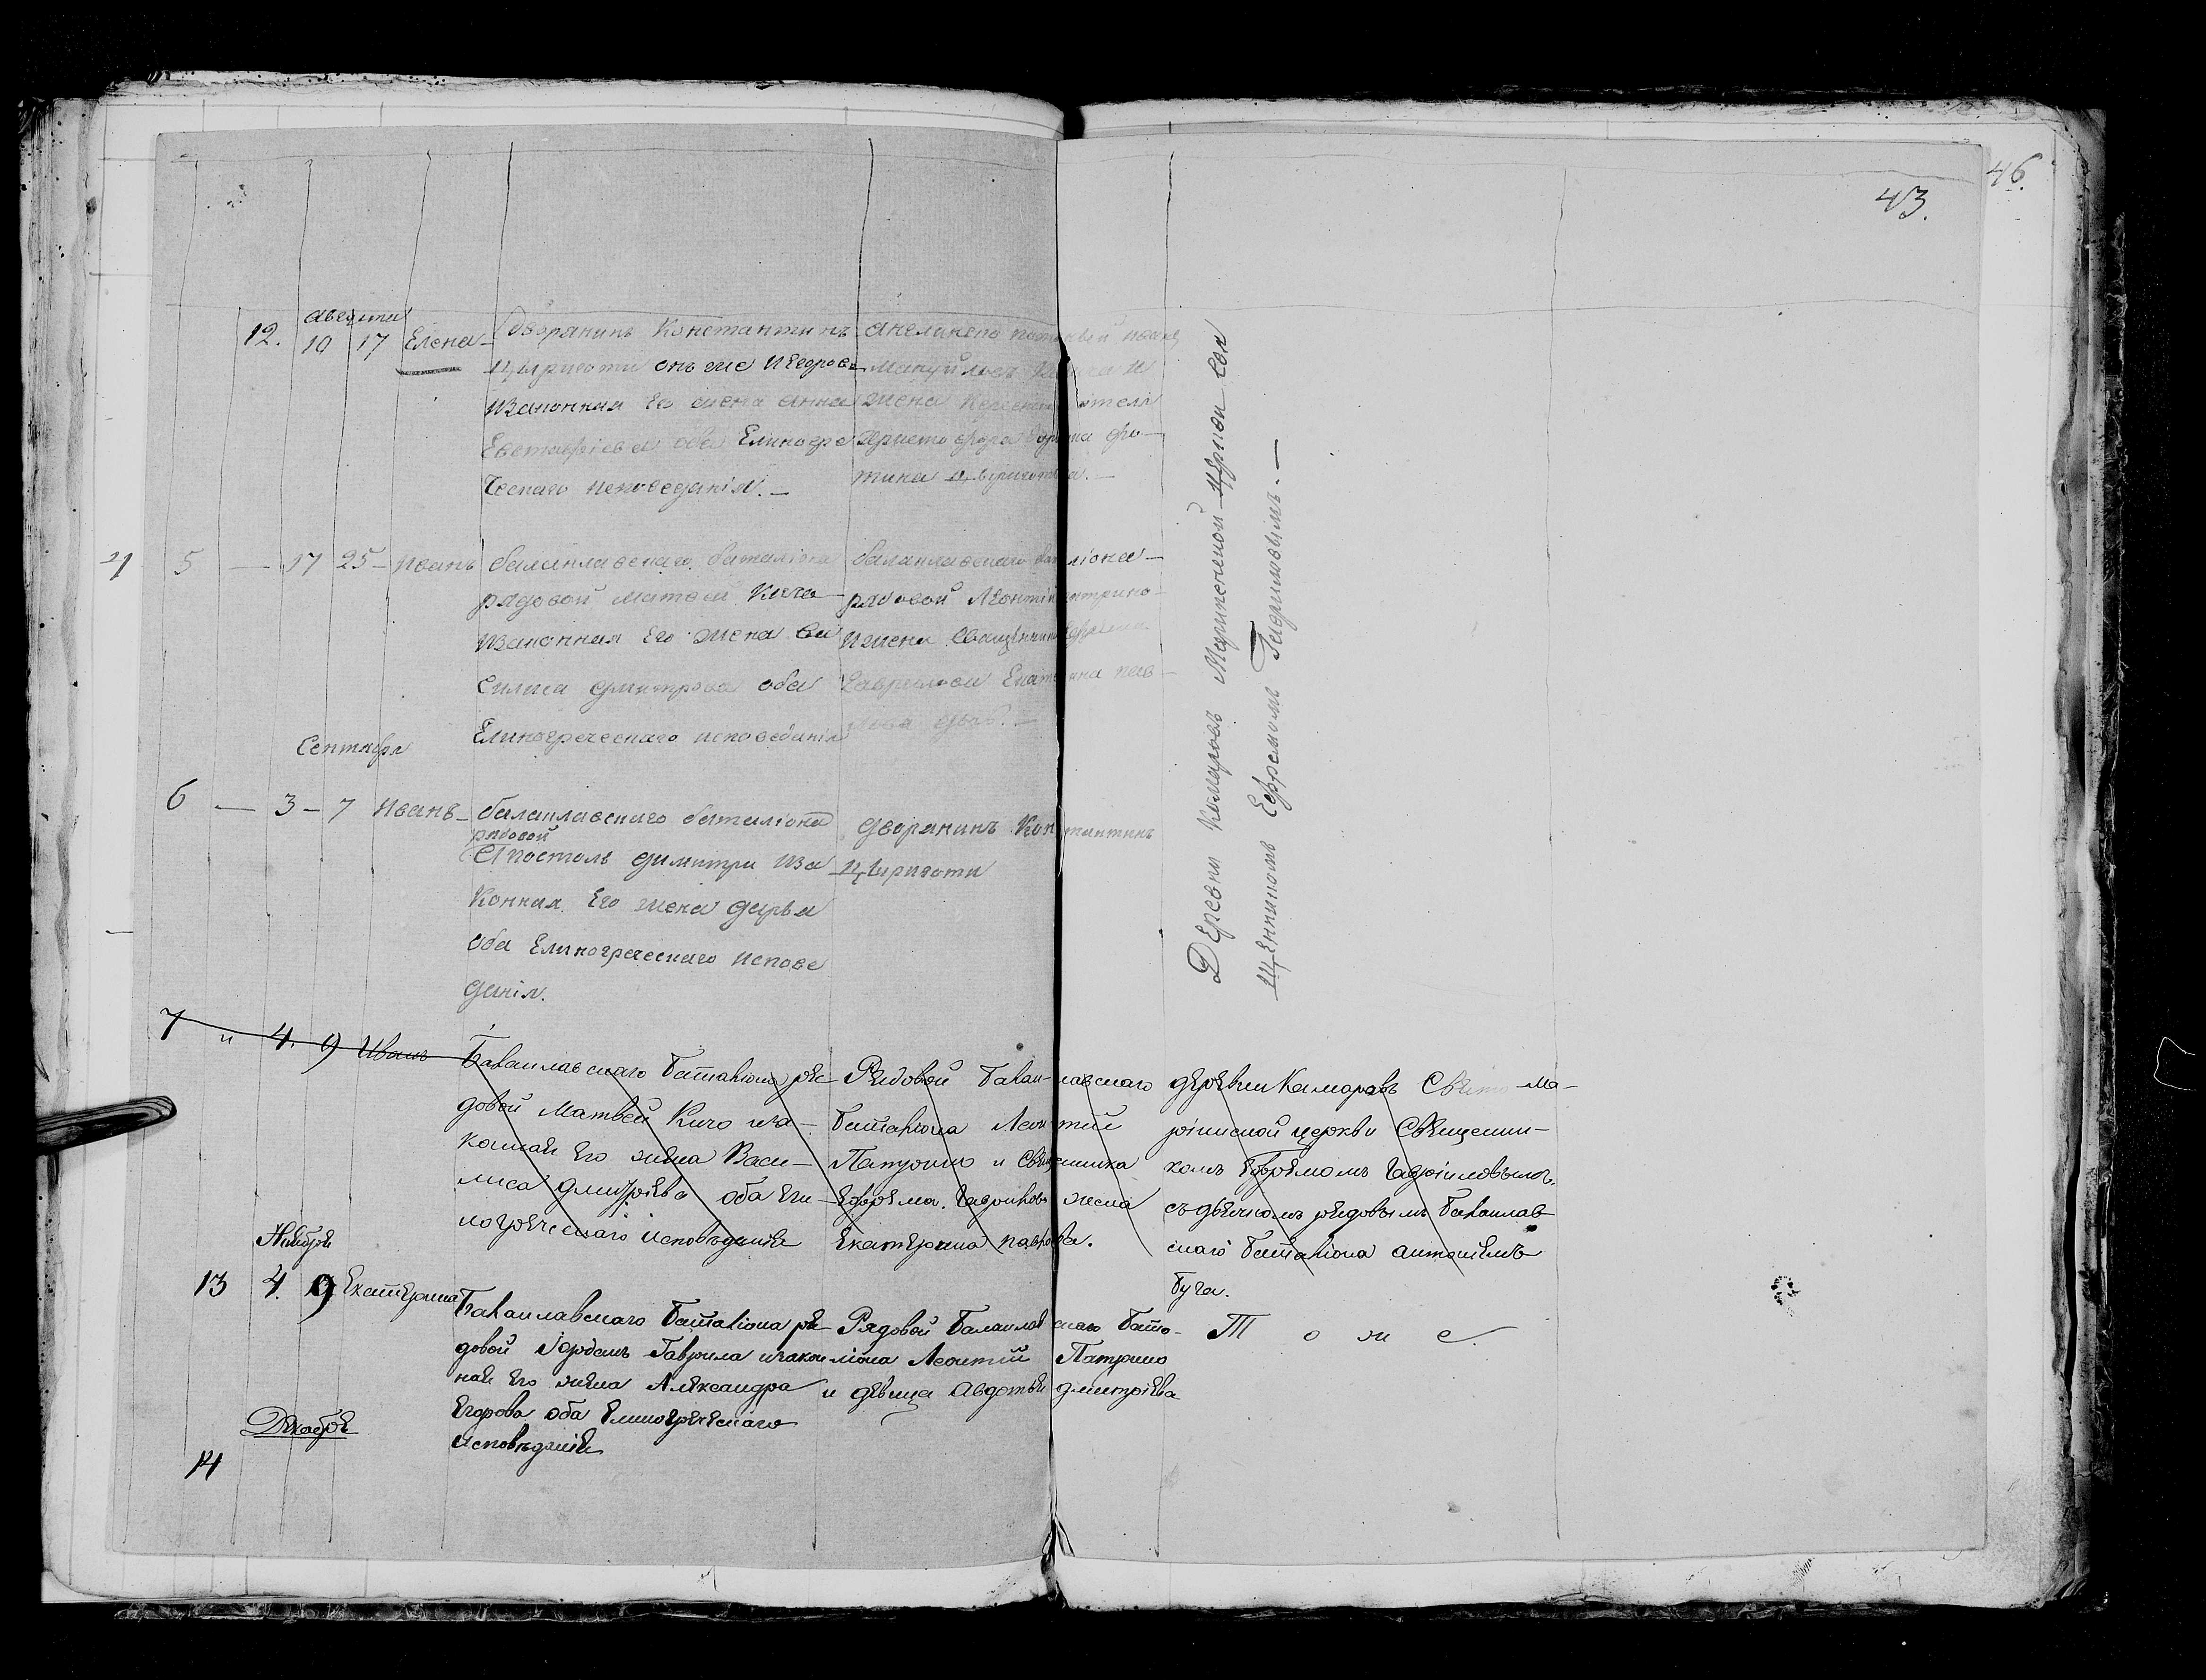 46.
43.
августа
12. 10 17 Елена
Дворянинъ Константинъ
Цыриготи онъ же Игегрова
изаконная Его жена анна
Евстафiева оба Елиногре
ческаго исповеданiя.
жена
Христофора
тина Цыриготва.
21 5 — 17 25 — иванъ
балаклавскаго баталiона
рядовой матвей Кичо
изаконная Его жена ва
силиса дмитрова оба
Елиногреческаго исповеданiя
балаклавскаго баталiона
рядовой Леонтiй
ижена Священника
Сентября
6 — 3 — 7 Иванъ
балаклавскаго баталiона
рядовой
Апостолъ димитри иза
Конная Его жена дарья
оба Елиногреческаго испове
данiя.
дворянинъ Константинъ
Цыриготи
Деревни Камаровъ Марiинской Церкви Свя
щенникомъ Ефремомъ Гавриловымъ.—
7 и 4. 9 Иванъ
Балаклавскаго баталiона ря-
довой Матвей Кичо иза-
конная Его жена Васи-
лиса дмитрiева оба Ели-
ногреческаго исповъданiя
Рядовой балаклавскаго
баталiона Леонтий
Патрино и Священника
Ефрема. Гаврилова жена
Екатерина павлова.
деревни Камаровъ Свято Ма-
рiинской церкви Священни-
комъ Ефремомъ Гаврiиловымъ.
съ дьячкомъ рядовымъ балаклав
скаго баталiона антонiемъ
буга.
Ноября
13 4. 9 Екатерина
Балаклавскаго баталiона ря-
довой iорданъ Гаврила изакон
ная Его жена Александра
Егорова оба Елиногреческаго
исповъданiя
Рядовой балаклавскаго бата-
лiона Леонтий Патрино
и девица Авдотья дмитрiева
Т о ж е
Декабря
14